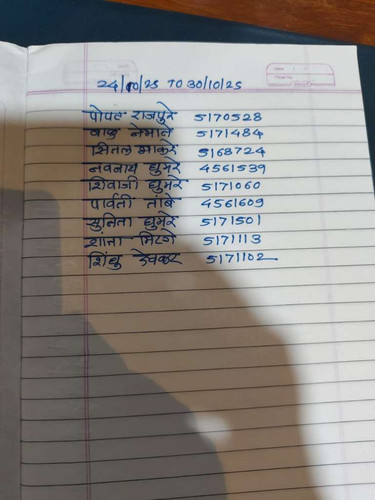 24/10/25 TO 30/10/25
पोपट राजपुरे 5170528
बाळु नेमाने 5171484
सितल भाकरे 5168724
नवनाथ घुमरे 4561539
शिवाजी घुमरे 5171060
पार्वती तांबे 4561609
सुनिता घुमरे 5171501
शांता मिटगे 5171113
शिंधु देवकर 5171102